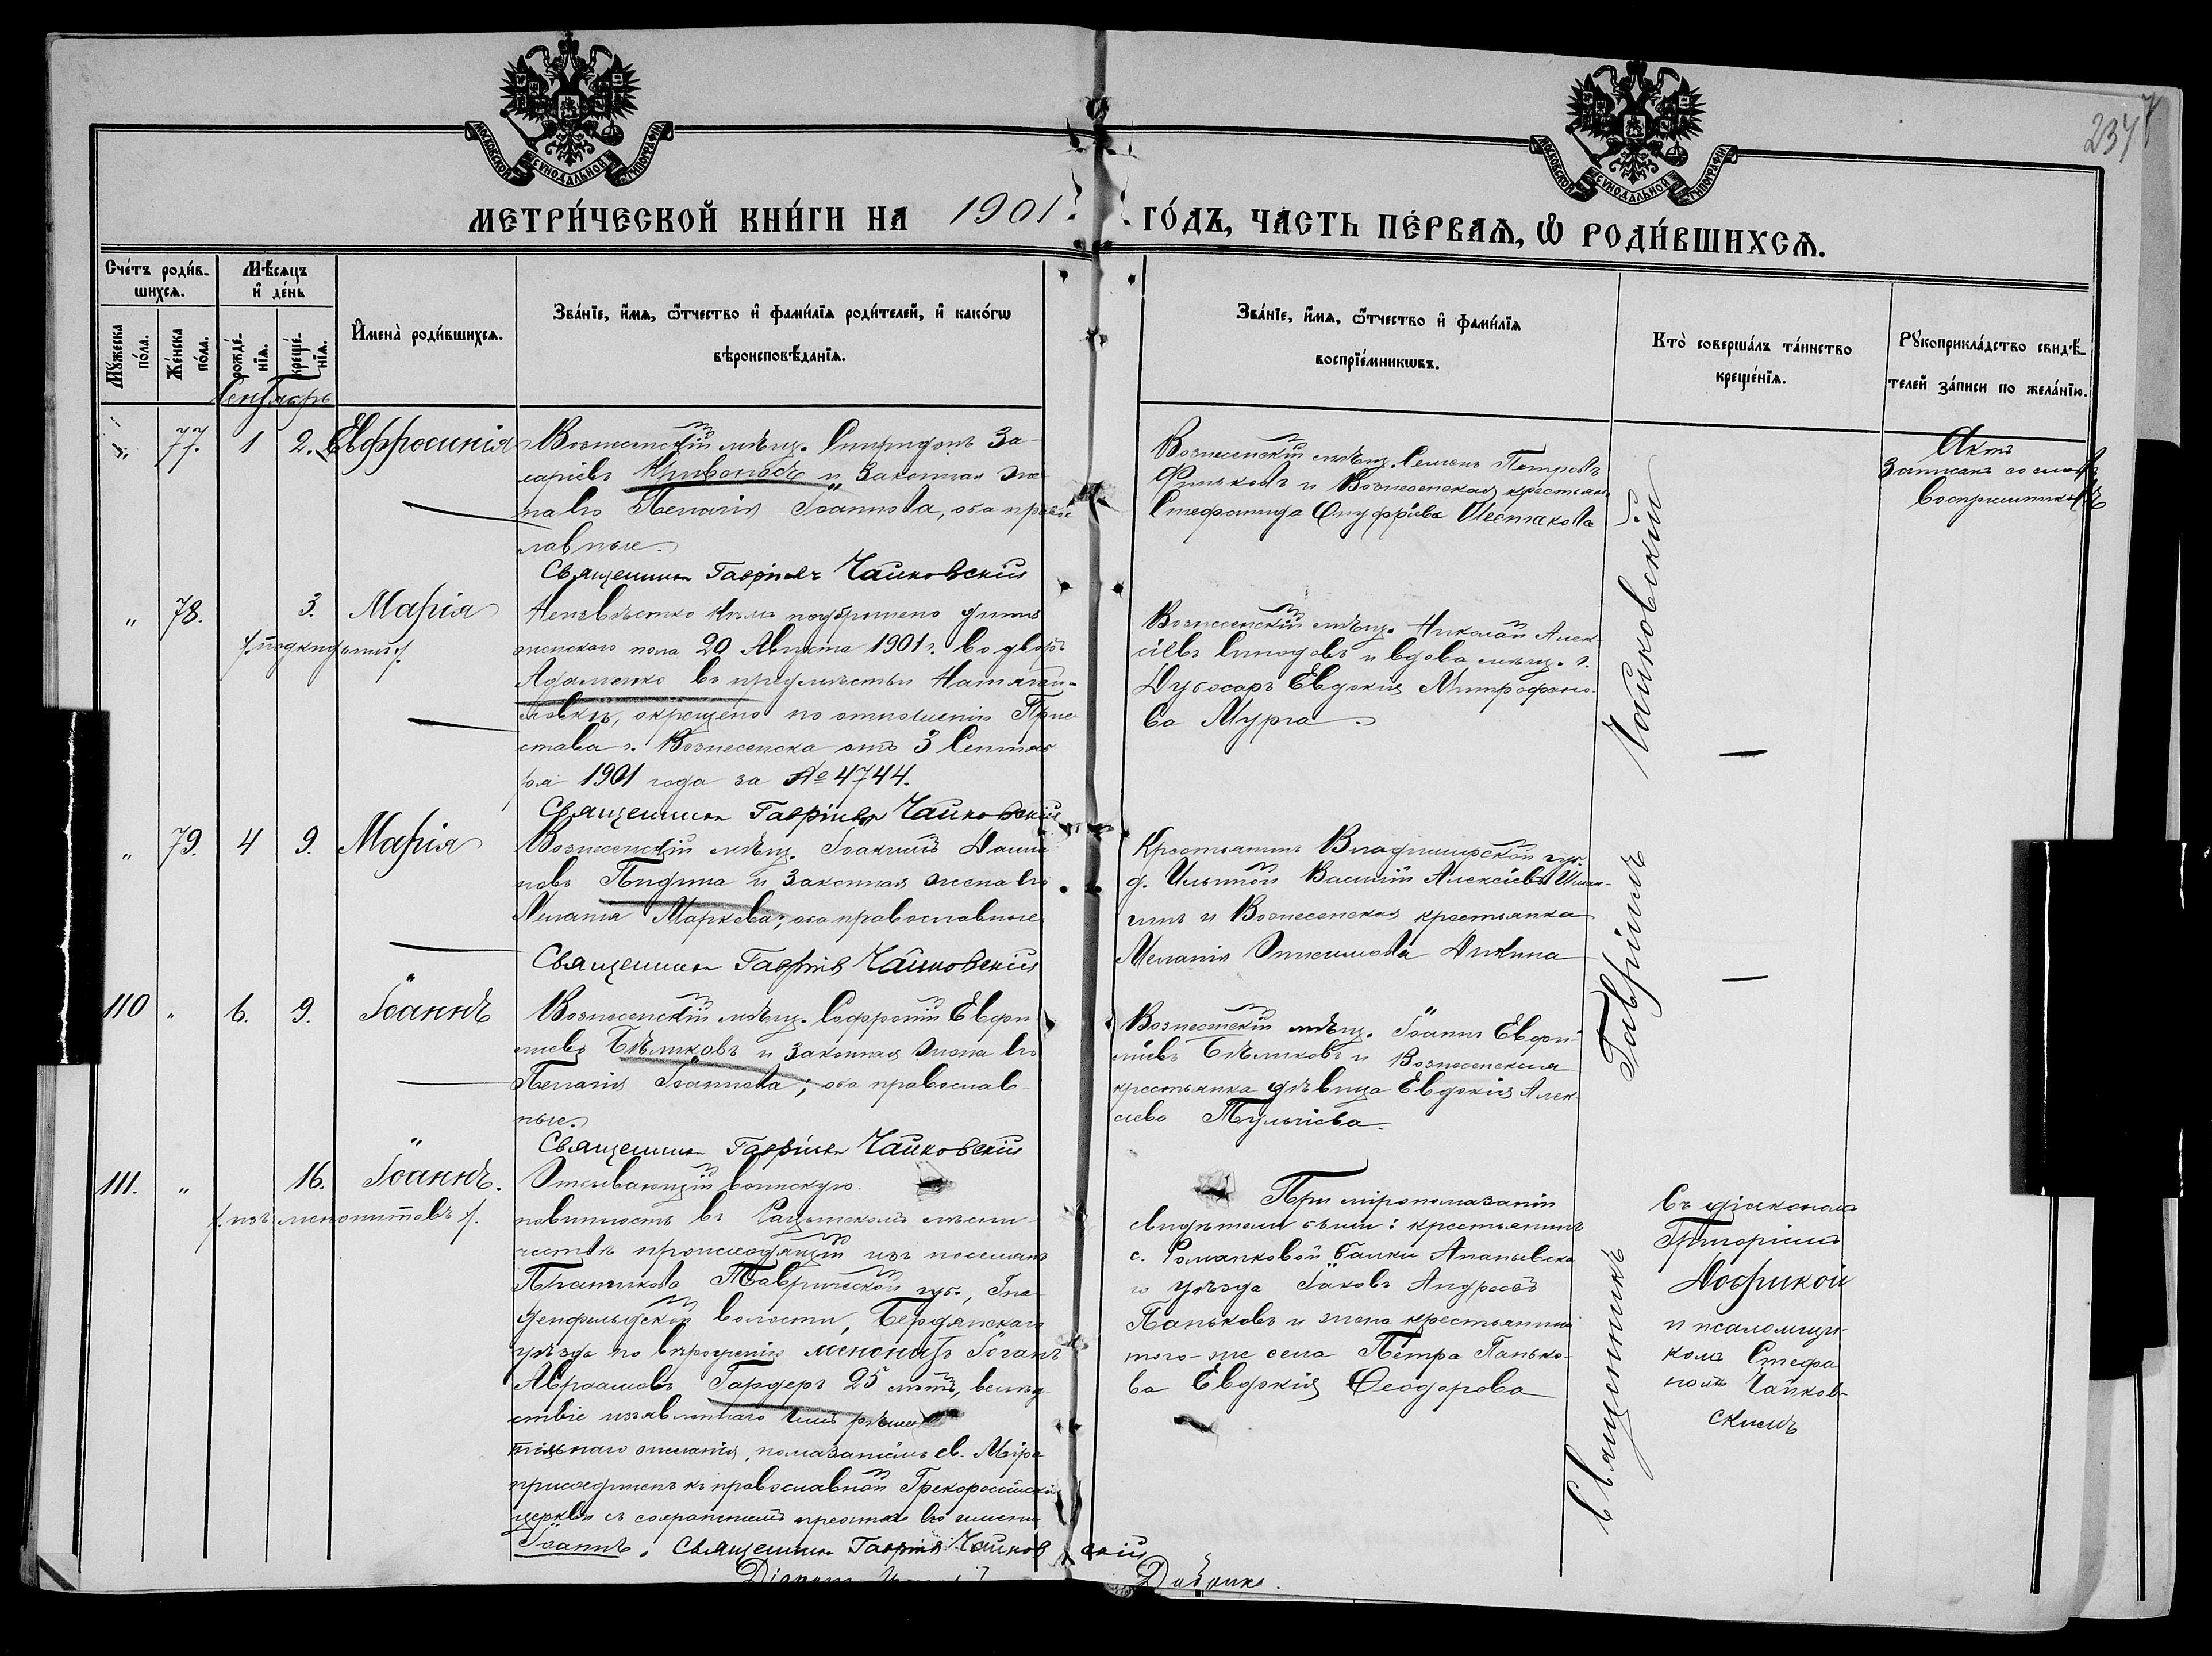 МОСКОВСКОЙ СѴНОДАЛЬНОЙ ТИПОГРАФІИ
МОСКОВСКОЙ СѴНОДАЛЬНОЙ ТИПОГРАФІИ
237
МЕТРИ́ЧЕСКОЙ КНИ́ГИ НА 1901. ГО́ДЪ, ЧА́СТЬ ПЕ́РВАѦ, Ѡ РОДИ́ВШИХСѦ.
Сче́тъ роди́в-
шихсѧ.
Мѣ́сяцъ
и҆ де́нь
Мꙋ́жеска по́ла.
Же́нска по́ла.
рожде́-
нїѧ.
креще́-
нїѧ.
И҆мена̀ роди́вшихсѧ.
Зва́нїе, и҆́мѧ, ѻ҆́тчество и҆ фами́лїѧ роди́телей, и҆ како́гѡ
вѣроисповѣ́данїѧ.
Зва́нїе, и҆́мѧ, ѻ҆́тчество и҆ фами́лїѧ
воспрїе́мникѡвъ.
Кто̀ соверша́лъ та́инство
креще́нїѧ.
Рꙋкоприкла́дство свидѣ́-
телей за́писи по жела́нїю.
Сентябрь
" 77. 1 2. Евфросинія
Вознесенскій мѣщ. Спиридонъ За-
харіевъ Кривоносъ и законная же-
на его Пелагія Іоаннова, оба право-
славные.
Священникъ Гавріилъ Чайковскій
Вознесенскій мѣщ. Семенъ Петровъ
Финьковъ и Вознесенская крестьян.
Стефанида Онуфріева Шестакова
Актъ
Записанъ со словъ
Воспріемниковъ
" 78. 3. Марія
/:подкидышъ:/
Неизвѣстно кѣмъ подброшено дитя
женскаго пола 20 Августа 1901 г. во дворъ
Адаменко въ предмѣстьи Натягай-
ловкѣ, окрещено по отношенію При-
става г. Вознесенска отъ 3 Сентяб-
ря 1901 года за № 4744.
Священникъ Гавріилъ Чайковскій
Вознесенскій мѣщ. Николай Алек-
сіевъ Синодовъ и вдова мѣщ. г.
Дубосаръ Евдокія Митрофано-
ва Мурга
—
" 79. 4 9. Марія
Вознесенскій мѣщ. Іоакимъ Дамиа-
новъ Пидгина и законная жена его
Меланія Маркова; оба православные
Священникъ Гавріилъ Чайковскій
Крестьянинъ Владимирской губ.
д. Ильиной Василій Алексіевъ
и Вознесенская крестьянка
Меланія Онисимова Дикина
—
110 " 6. 9. Іоаннъ
Вознесенскій мѣщ. Софроній Евфи-
міевъ Бѣликовъ и законная жена его
Пелагія Іоаннова; оба православ-
ные.
Священникъ Гавріилъ Чайковскій
Вознесенскій мѣщ. Іоаннъ Евфи-
міевъ Бѣликовъ и Вознесенская
крестьянка дѣвица Евдокія Алек-
сіева Пульчіева.
111. " 16. Іоаннъ.
/:изъ менонитовъ:/
Отбывающій воинскую
повинность въ Рацынскомъ лѣсни-
чествѣ происходящій изъ поселянъ
Таврической губ., Гна-
денфельдской волости, Бердянскаго
уѣзда по вѣроученію менонитъ Іоганъ
Авраамовъ Гардеръ 25 лѣтъ, вслѣд-
ствіе изъявленнаго имъ рѣши-
тельнаго желанія, помазаніемъ св. Мѵра
присоединенъ къ православной Грекороссійской
церкви съ сохраненіемъ прежняго его имени
Іоаннъ. Священникъ Гавріилъ Чайковскій
Діаконъ Добрико.
При мѵропомазаніи
свидѣтели были: крестьянинъ
с. Романковой Балки Ананьевска-
го уѣзда Іаковъ Андреевъ
Паньковъ и жена крестьянина
того-же села Петра Панько-
ва Евдокія Ѳеодорова
Съ діакономъ
Григоріемъ
Добрикой
и псаломщи-
комъ Стефа-
номъ Чайков-
скимъ
Священникъ Гавріилъ Чайковскій